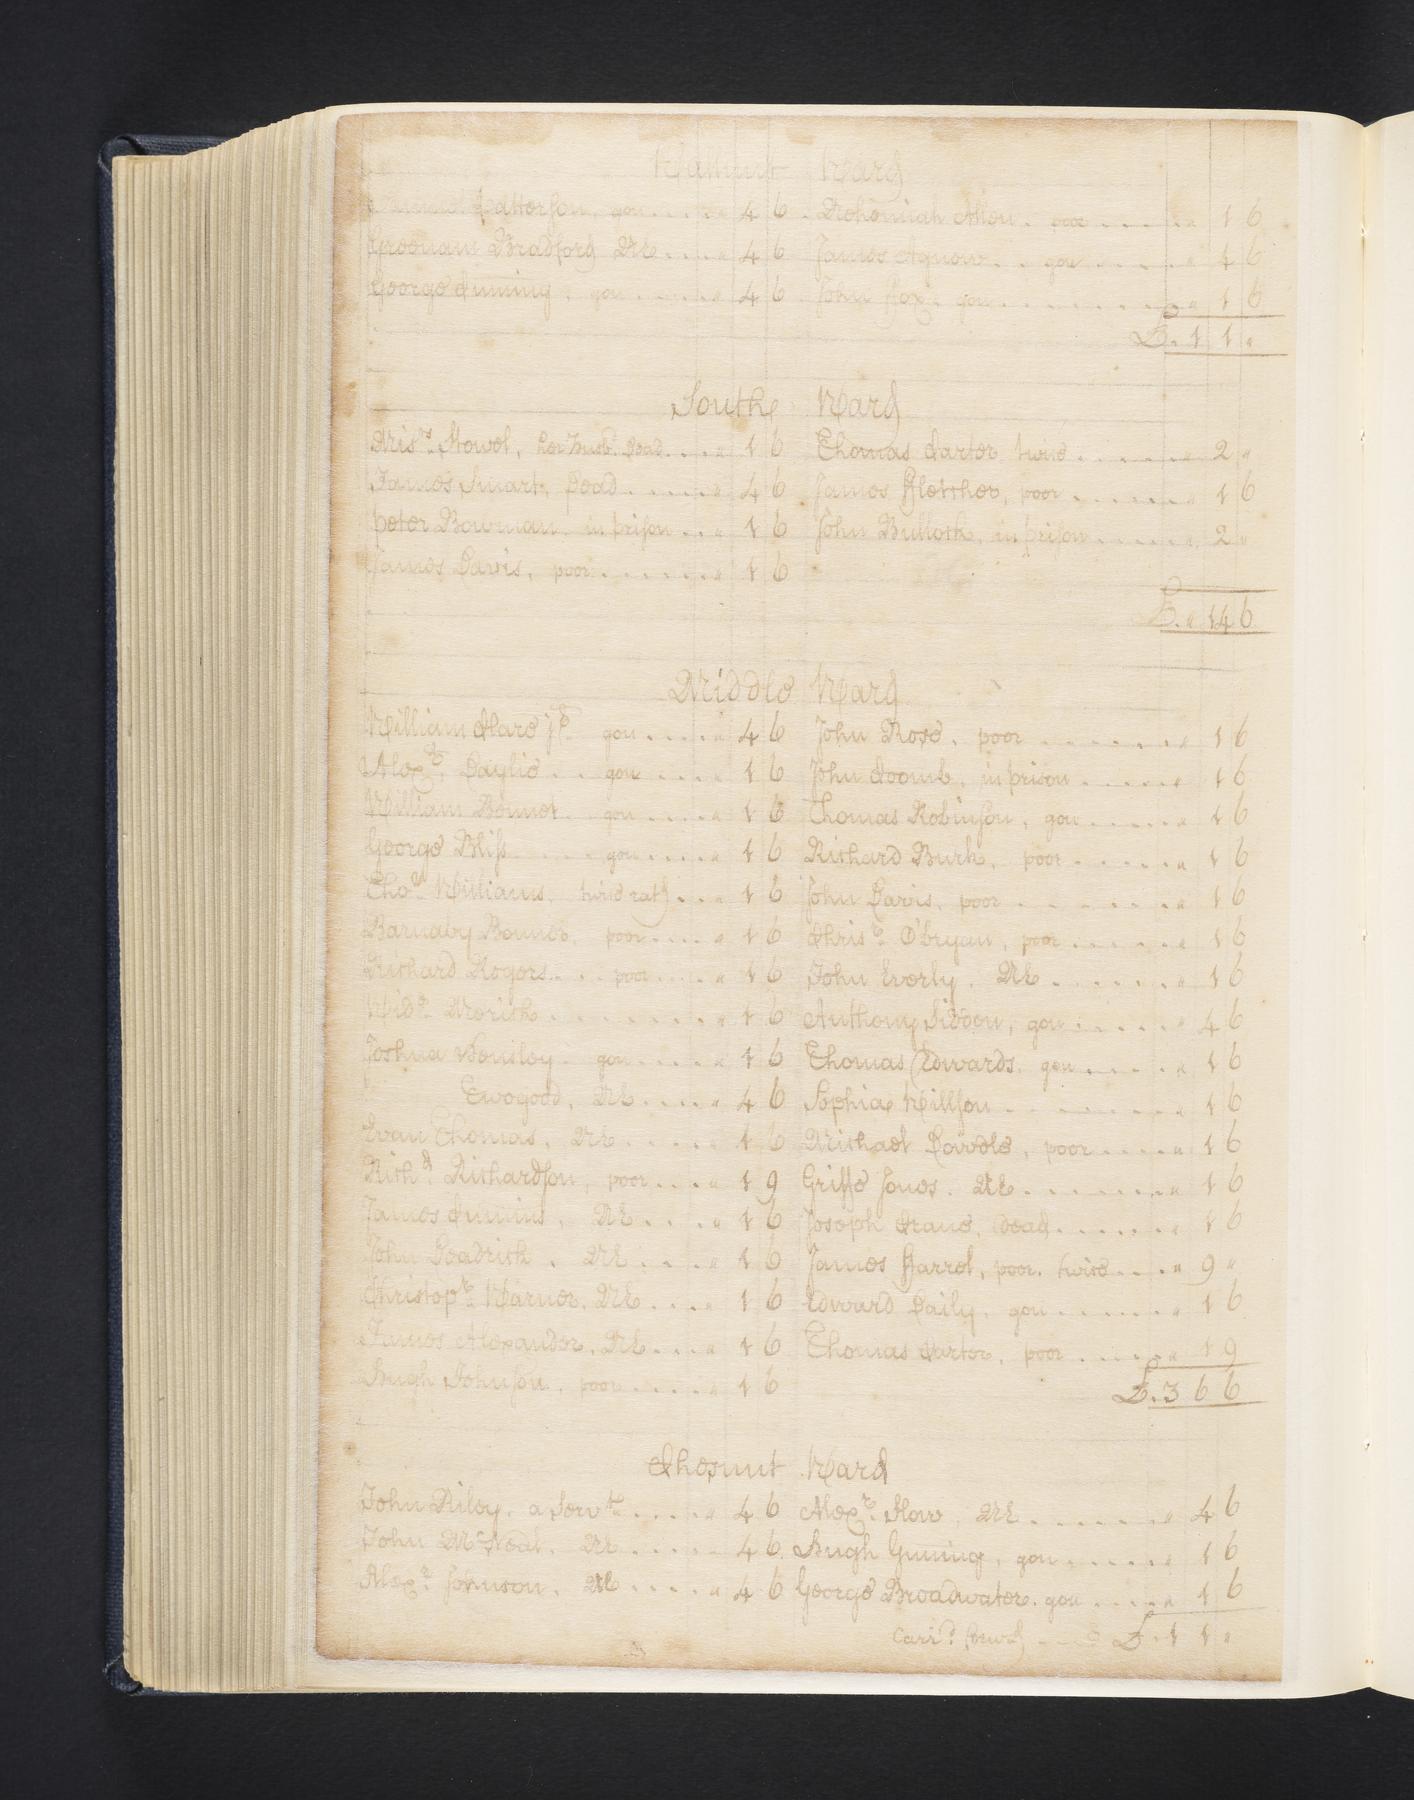 Walnut Ward
Patterson, gon . . . . " 4 6 Nehemiah Allen . poor . . . . . " 1 6
Greenam Bradford NE . . . . " 4 6 James Agnow . . gon . . . . . " 4 6
George Inming, gon . . . . . " 4 6 John Fox, gon . . . . . . . . " 1 6
£. 1 1 "
South Ward
Mis.rs Stowel, her Husb.d Dead . . . . " 1 6 Thomas Carter twice . . . . . . . " 2 "
James Smart, Dead . . . . . " 4 6 James Fletcher, poor . . . . . . " 1 6
Peter Bowman . in prison . . " 1 6 John Bullock, in prison . . . . . . " 2 "
James Davis, poor . . . . . . . " 1 6
£. " 14 6
Middle Ward
William Hare j.r gon . . . . " 4 6 John Rose, poor . . . . . . . " 1 6
Alex.r Baylie . . gon . . . . " 1 6 John Coomb, in prison . . . . . " 1 6
William Bonnet . gon . . . . . " 1 6 Thomas Robinson, gon . . . . . . " 1 6
George Bliss . . . . gon . . . . . " 1 6 Richard Burk, poor . . . . . . " 1 6
Tho.s Williams, twice rat'd . . " 1 6 John Davis, poor . . . . . . . . " 1 6
Barnaby Bonner, poor . . . . " 1 6 Chris.r O'bryan, poor . . . . . . " 1 6
Richard Rogers . . . poor . . . . " 1 6 John Everly . NE . . . . . . . " 1 6
Wid.o Merick . . . . . . . . . " 1 6 Anthony Siddon, gon . . . . . " 4 6
Joshua Bensley . gon . . . . . " 1 6 Thomas Edwards . gon . . . . . " 1 6
Twogood, NE . . . . " 4 6 Sophia Willson . . . . . . . . . " 1 6
Evan Thomas, NE . . . . . " 1 6 Michael Dowdle, poor . . . . . " 1 6
Rich.d Richardson, poor . . . . " 1 9 Griffe Jones . NE . . . . . . . . " 1 6
James Inmins, NE . . . . " 1 6 Joseph Crane, Dead . . . . . . " 1 6
John Goadrick . NE . . . . . " 1 6 James Farrel, poor . twice . . . " 9 "
Christop.r Warner, NE . . . . " 1 6 Edward Daily, gon . . . . . . . " 1 6
James Alexander, NE . . . . " 1 6 Thomas Carter, poor . . . . . " 1 9
Hugh Johnson, poor . . . . . " 1 6 £. 3 6 6
Chesnut Ward
John Riley . a Serv.t . . . . . " 4 6 Alex.r How, NE . . . . . . . " 4 6
John McNeal . NE . . . . . 4 6 Hugh Guning, gon . . . . . . " 1 6
Alex.r Johnson . NE . . . . . " 4 6 George Broadwater . gon . . . . . " 1 6
Carr.d forw.d £. 1 1 "